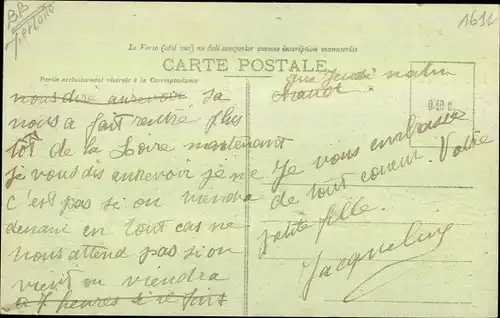 1612
Le Verso (côté vue) ne doit comporter aucune inscription manuscrite
CARTE POSTALE
Partie exclusivement réservée à la Correspondance
nous dire aurevoir sa
nous a fait rentré plus
tôt de la Loire maintenant
Je vous dis aurevoir je ne
c'est pas si on viendra
demain en tout cas ne
nous attend pas si on
vient on viendra
a 7 heures si il fait
que Jeudi matin
Je vous embrasse
de tout coeur. Votre
petite fille.
Jacqueline